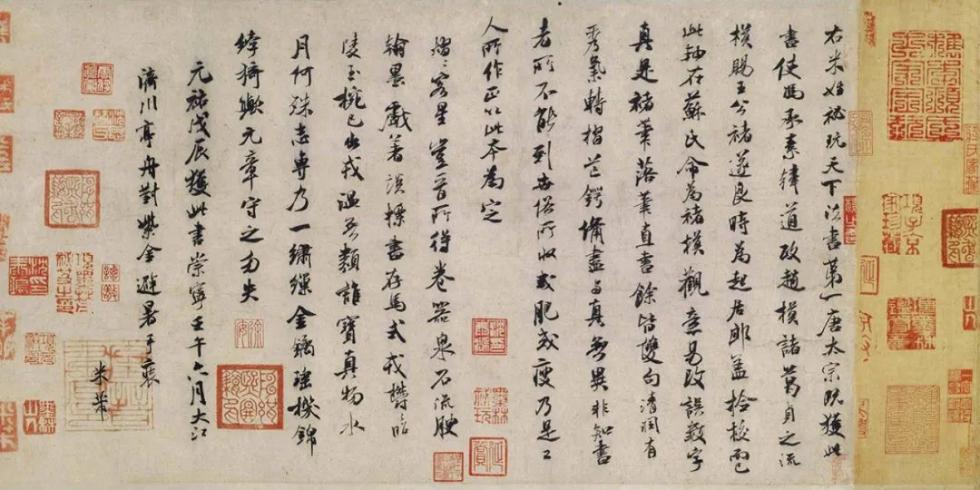 右米姓祕玩天下法書第一唐太宗既獲此
書使馮承素韓道政趙模諸葛貞之流
模賜王公褚遂良時為起居郎蓋檢校而已
此軸在蘇氏命為褚模觀意易改誤數字
真是褚筆落筆直書餘皆雙勾清潤有
秀氣轉摺芒鍔備盡與真無異非知書
者所不能到世俗所收或肥或瘦乃是工
人所作正以此本為定
熠〻客星豈晉所得卷器泉石流腴
翰墨戲著談標書存馬式鬱〻昭
陵玉椀已出戎溫無類誰寶真物水
月何殊志專乃一繡繅金鐍瓊機錦
綍猗歟元章守之勿失
元祐戊辰獲此書崇寧壬午六月大江
濟川亭舟對紫金避暑手裝
米芾
項子京家珍藏